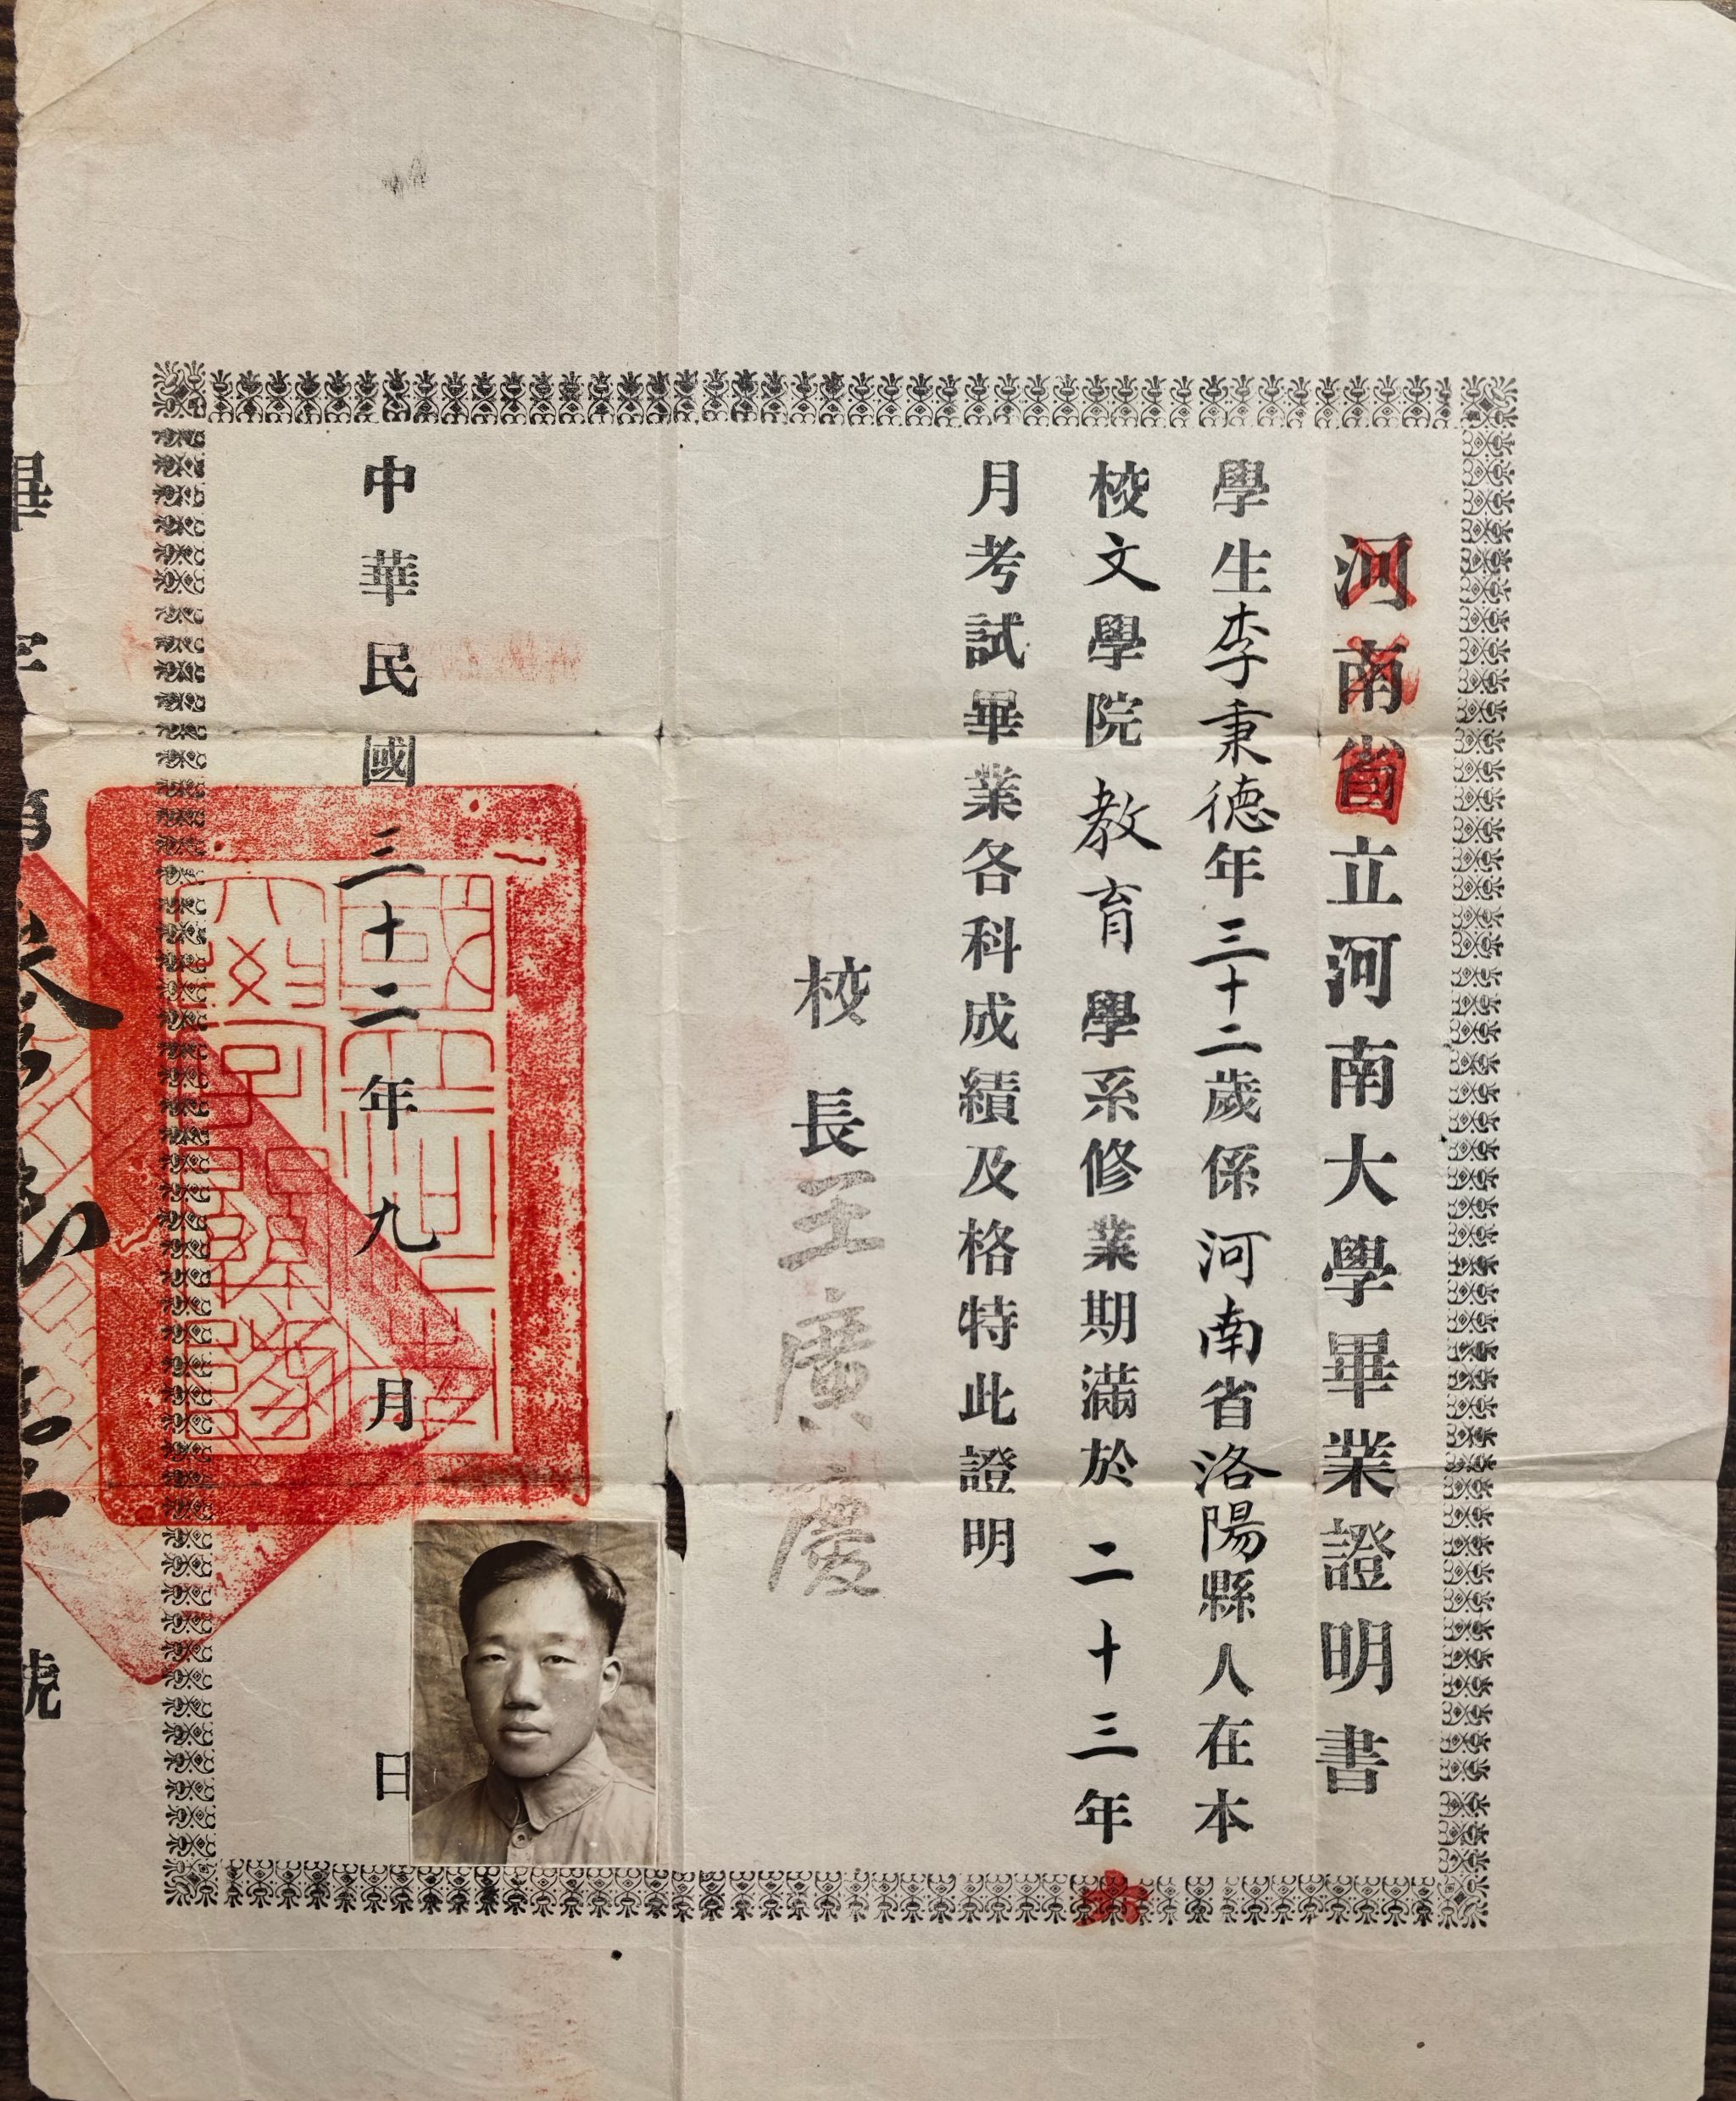 河南省立河南大學畢業證明書
學生李秉德年三十二歲係河南省洛陽縣人在本
校文學院教育學系修業期滿於二十三年六
月考試畢業各科成績及格特此證明
校長王廣慶
中華民國三十二年九月日
畢字第號